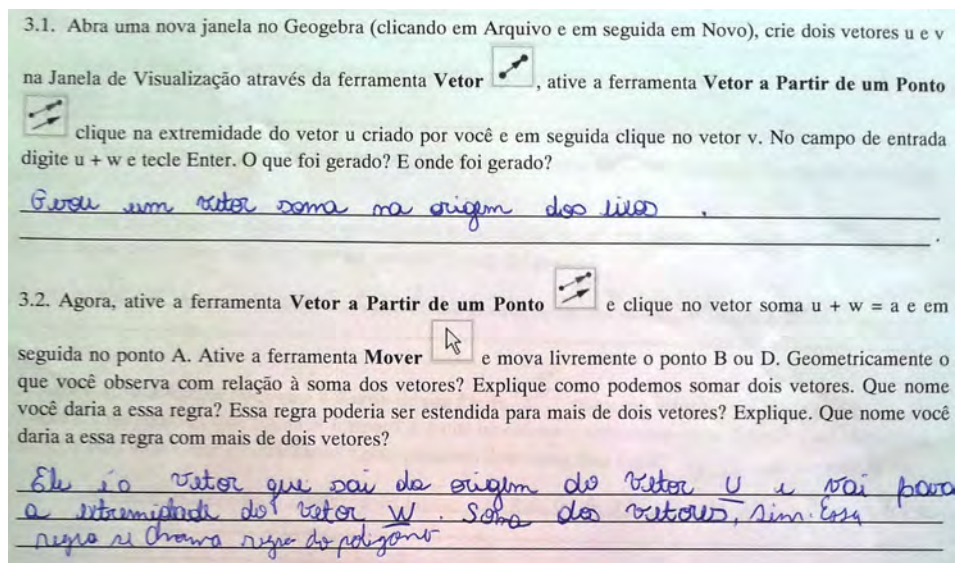 3.1. Abra uma nova janela no Geogebra (clicando em Arquivo e em seguida em Novo), crie dois vetores u e v
na Janela de Visualização através da ferramenta Vetor , ative a ferramenta Vetor a Partir de um Ponto
clique na extremidade do vetor u criado por você e em seguida clique no vetor v. No campo de entrada
digite u + w e tecle Enter. O que foi gerado? E onde foi gerado?
Gerou um vetor soma na origem dos
3.2. Agora, ative a ferramenta Vetor a Partir de um Ponto e clique no vetor soma u + w = a e em
seguida no ponto A. Ative a ferramenta Mover e mova livremente o ponto B ou D. Geometricamente o
que você observa com relação à soma dos vetores? Explique como podemos somar dois vetores. Que nome
você daria a essa regra? Essa regra poderia ser estendida para mais de dois vetores? Explique. Que nome você
daria a essa regra com mais de dois vetores?
Ele é o vetor que sai da origem do vetor U e vai para
a extremidade do vetor W. Soma dos vetores, sim. Essa
regra se chama regra do poligono